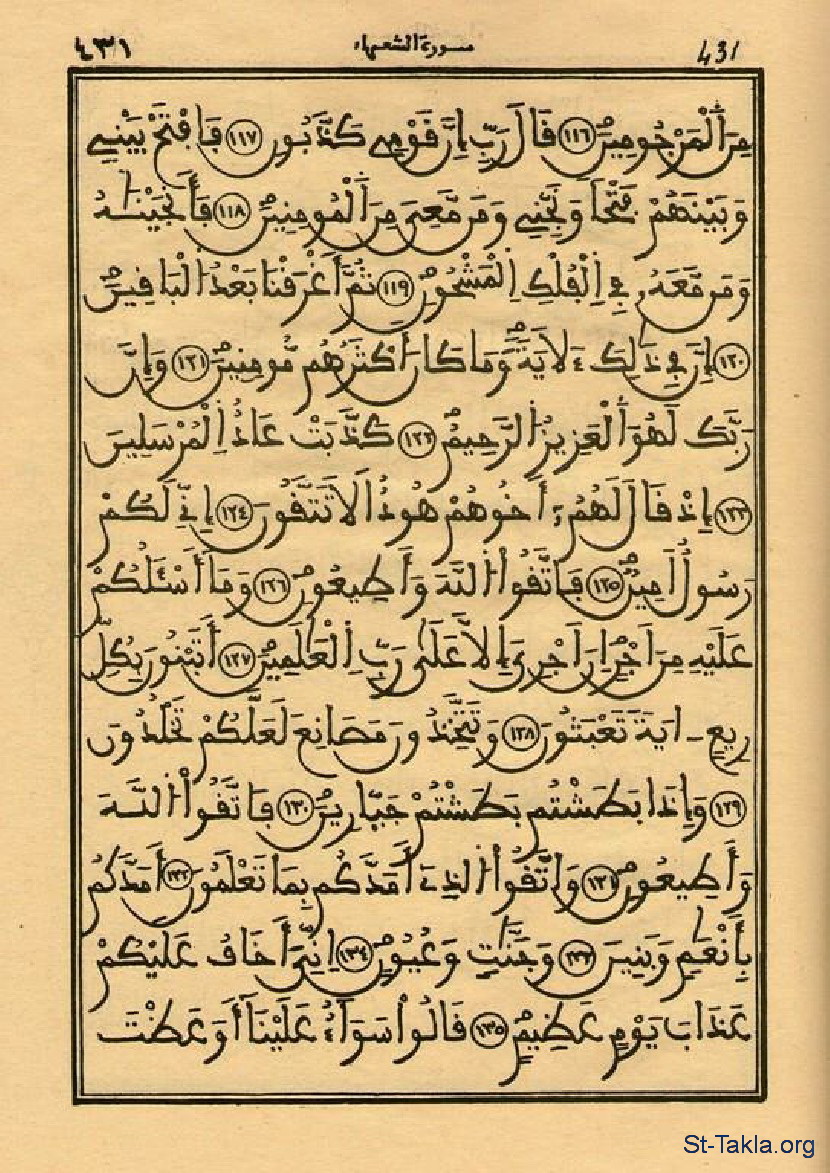 ٤٣١ سورة الشعراء 431
مِنَ اَلْمَرْجُومِينَ ١١٦ قَالَ رَبِّ إِنَّ قَوْمِي كَذَّبُونِ ١١٧ فَافْتَحْ بَيْنِي
وَبَيْنَهُمْ فَتْحاً وَنَجِّنِي وَمَن مَّعِيَ مِنَ اَلْمُومِنِينَ ١١٨ فَأَنجَيْنَٰهُ
وَمَن مَّعَهُۥ فِي اِلْفُلْكِ اِلْمَشْحُونِ ١١٩ ثُمَّ أَغْرَقْنَا بَعْدُ اُلْبَاقِينَ
١٢٠ إِنَّ فِي ذَٰلِكَ ءَلَايَةً وَمَا كَانَ أَكْثَرُهُم مُّومِنِينَ ١٢١ وَإِنَّ
رَبَّكَ لَهُوَ اَلْعَزِيزُ اُلرَّحِيمُ ١٢٢ كَذَّبَتْ عَادٌ اِلْمُرْسَلِينَ
١٢٣ إِذْ قَالَ لَهُمُۥٓ أَخُوهُمْ هُودٌ اَلَا تَتَّقُونَ ١٢٤ إِنِّي لَكُمْ
رَسُولٌ اَمِينٌ ١٢٥ فَاتَّقُوا اُللَّهَ وَأَطِيعُونِ ١٢٦ وَمَا أَسْـَٔلُكُمْ
عَلَيْهِ مِنَ اَجْرٍ اِنَ اَجْرِيَ إِلَّا عَلَىٰ رَبِّ اِلْعَٰلَمِينَ ١٢٧ أَتَبْنُونَ بِكُلِّ
رِيعٍ ـ ايَةً تَعْبَثُونَ ١٢٨ وَتَتَّخِذُونَ مَصَانِعَ لَعَلَّكُمْ تَخْلُدُونَ
١٢٩ وَإِذَا بَطَشْتُم بَطَشْتُمْ جَبَّارِينَ ١٣٠ فَاتَّقُوا اُللَّهَ
وَأَطِيعُونِ ١٣١ وَاتَّقُوا اُلذِي أَمَدَّكُم بِمَا تَعْلَمُونَ ١٣٢ أَمَدَّكُم
بِأَنْعَٰمٍ وَبَنِينَ ١٣٣ وَجَنَّٰتٍ وَعُيُونٍ ١٣٤ اِنِّيَ أَخَافُ عَلَيْكُمْ
عَذَابَ يَوْمٍ عَظِيمٍ ١٣٥ قَالُوا سَوَآءٌ عَلَيْنَا أَوَعَظْتَ
St-Takla.org